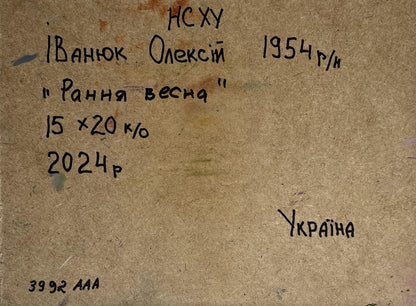 НСХУ
Іванюк Олексій 1954 г/н
"Рання весна"
15 х 20 к/о
2024р
Україна
3992 ААА